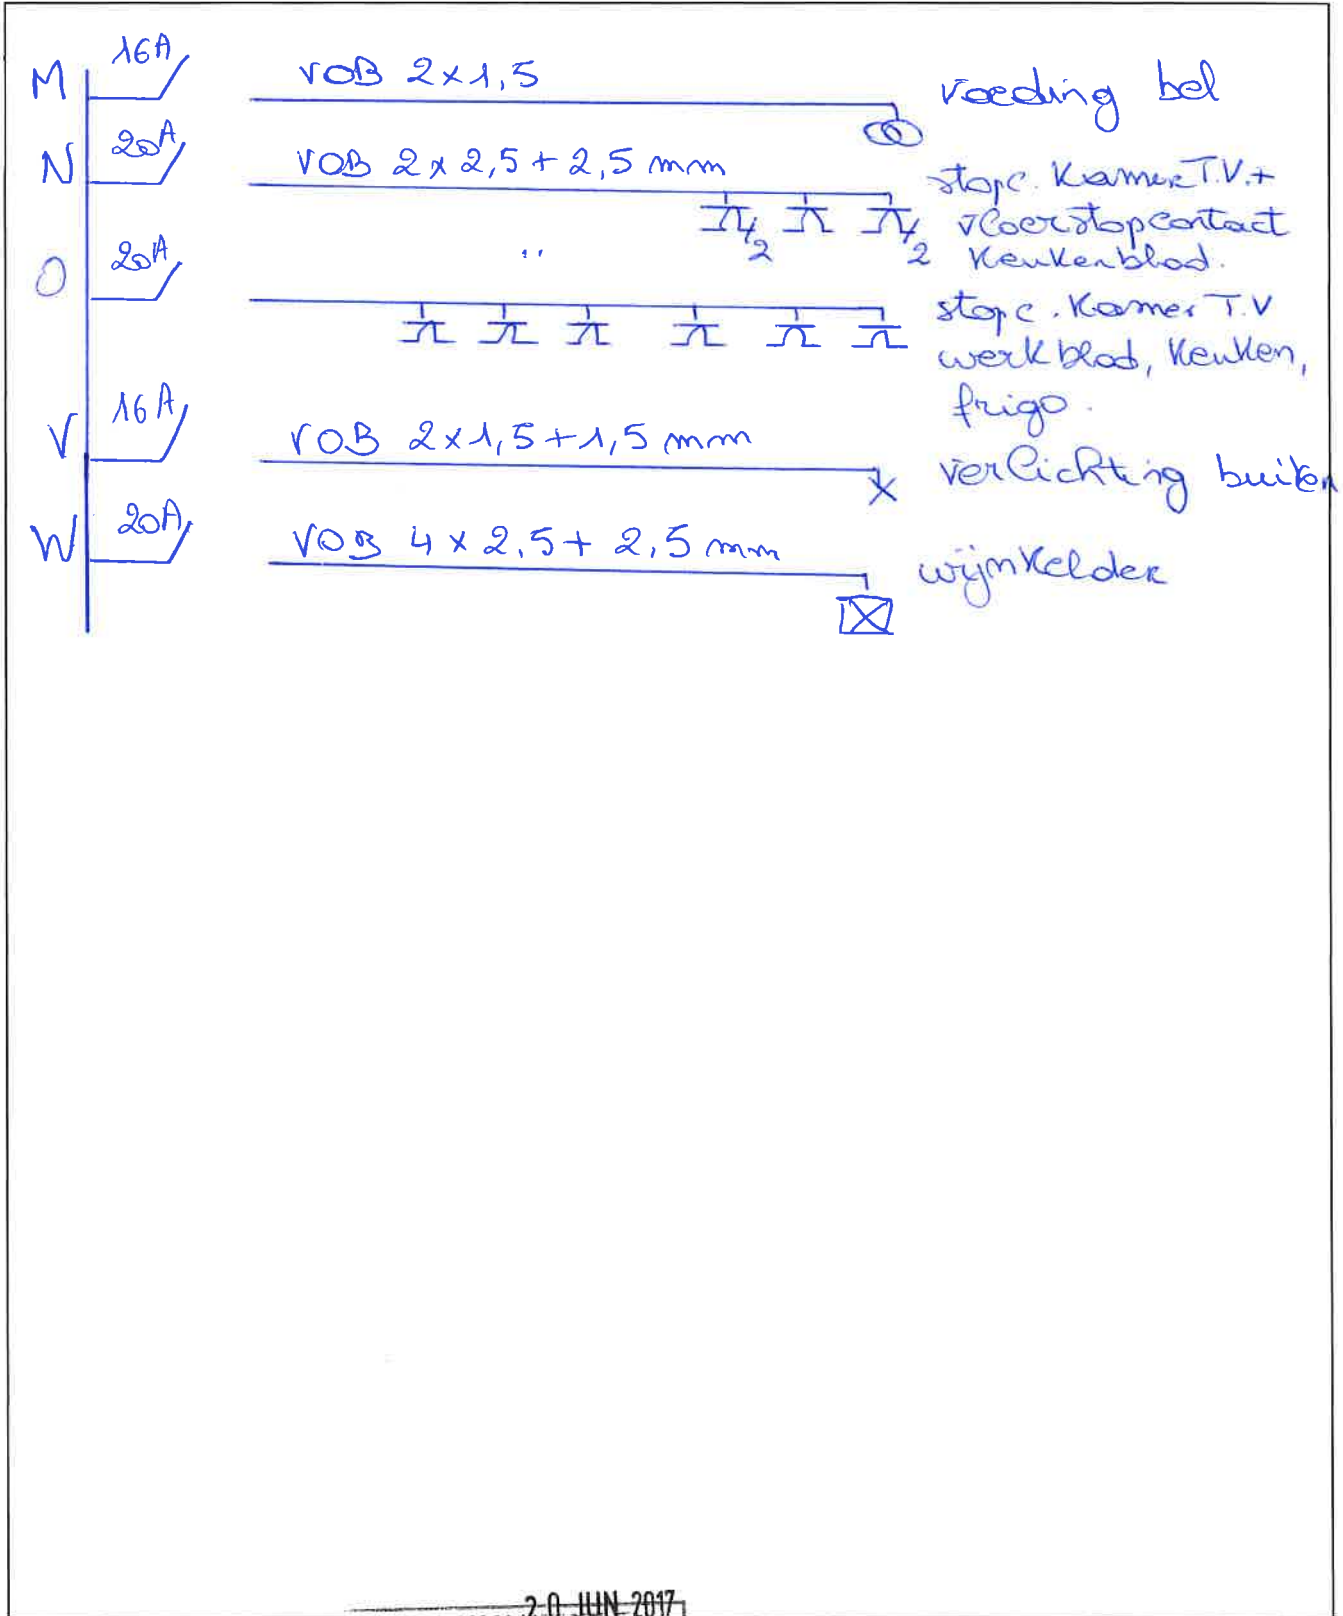 M 16A VOB 2x1,5 voeding bel
N 20A VOB 2x2,5+2,5 mm stopc. Kamer T.V.+
2 2 vloerstopcontact
keukenblad.
O 20A ..
stopc. Kamer T.V
werkblad, keuken,
frigo.
V 16A VOB 2x1,5+1,5 mm verlichting buiten
W 20A VOB 4x2,5+2,5 mm wijnkelder
20 JUN 2017